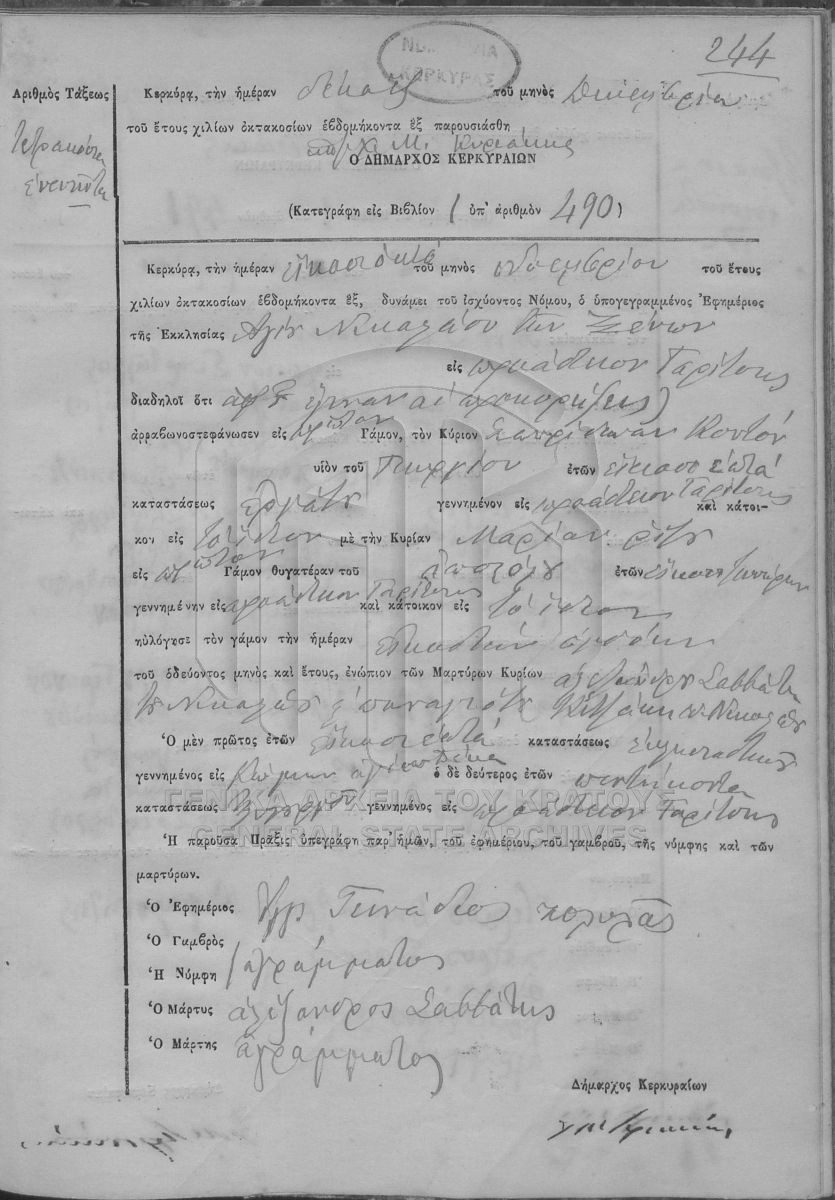 244
ΚΕΡΚΥΡΑΣ
Ἀριθμὸς Τάξεως
Τετρακόσια
ἐνενῆντα
Κερκύρᾳ, τὴν ἡμέραν δεκάτῃ τοῦ μηνὸς Δεκεμβρίου
τοῦ ἔτους χιλίων ὀκτακοσίων ἑβδομήκοντα ἓξ παρουσιάσθη
Ο ΔΗΜΑΡΧΟΣ ΚΕΡΚΥΡΑΙΩΝ
(Κατεγράφη εἰς Βιβλίον 1 ὑπ' ἀριθμὸν 490)
Κερκύρᾳ, τὴν ἡμέραν εἰκοστὸ ὀκτὼ τοῦ μηνὸς Νοεμβρίου τοῦ ἔτους
χιλίων ὀκτακοσίων ἑβδομήκοντα ἓξ, δυνάμει τοῦ ἰσχύοντος Νόμου, ὁ ὑπογεγραμμένος Ἐφημέριος
τῆς Ἐκκλησίας Ἁγίου Νικολάου τῶν Ξένων
εἰς προάστειον Γαρίτσης
διαδηλοῖ ὅτι ἀφ' οὗ ἔγιναν αἱ προκηρύξεις
ἀρραβωνοστεφάνωσεν εἰς πρῶτον Γάμον, τὸν Κύριον Σπυρίδωνα Κοντόν
υἱὸν τοῦ Γεωργίου ἐτῶν εἴκοσι ἑπτά
καταστάσεως ἐργάτη γεννημένον εἰς προάστειον Γαρίτσης καὶ κάτοι-
κον εἰς τὸ ἴδιον μὲ τὴν Κυρίαν Μαρίαν
εἰς πρῶτον Γάμον θυγατέραν τοῦ ἐτῶν εἴκοσι τεσσάρων
γεννημένην εἰς προάστειον Γαρίτσης καὶ κάτοικον εἰς τὸ ἴδιον
ηὐλόγησε τὸν γάμον τὴν ἡμέραν εἰκοστὴν ὀγδόην
τοῦ ὁδεύοντος μηνὸς καὶ ἔτους, ἐνώπιον τῶν Μαρτύρων Κυρίων Ἀλεξάνδρου Σαββάτη
τοῦ Νικολάου καὶ Παναγιώτη τοῦ Νικολάου
Ὁ μὲν πρῶτος ἐτῶν εἴκοσι ἑπτά καταστάσεως
γεννημένος εἰς Κώμην ὁ δὲ δεύτερος ἐτῶν πεντήκοντα
καταστάσεως γεωργοῦ γεννημένος εἰς προάστειον Γαρίτσης
ΓΕΝΙΚΑ ΑΡΧΕΙΑ ΤΟΥ ΚΡΑΤΟΥΣ
GENERAL STATE ARCHIVES
Ἡ παροῦσα Πρᾶξις ὑπεγράφη παρ' ἡμῶν, τοῦ ἐφημερίου, τοῦ γαμβροῦ, τῆς νύμφης καὶ τῶν
μαρτύρων.
Ὁ Ἐφημέριος Γεννάδιος
Ὁ Γαμβρὸς
Ἡ Νύμφη ἀγράμματος
Ὁ Μάρτυς ἀλέξανδρος Σαββάτης
Ὁ Μάρτης ἀγράμματος
Δήμαρχος Κερκυραίων